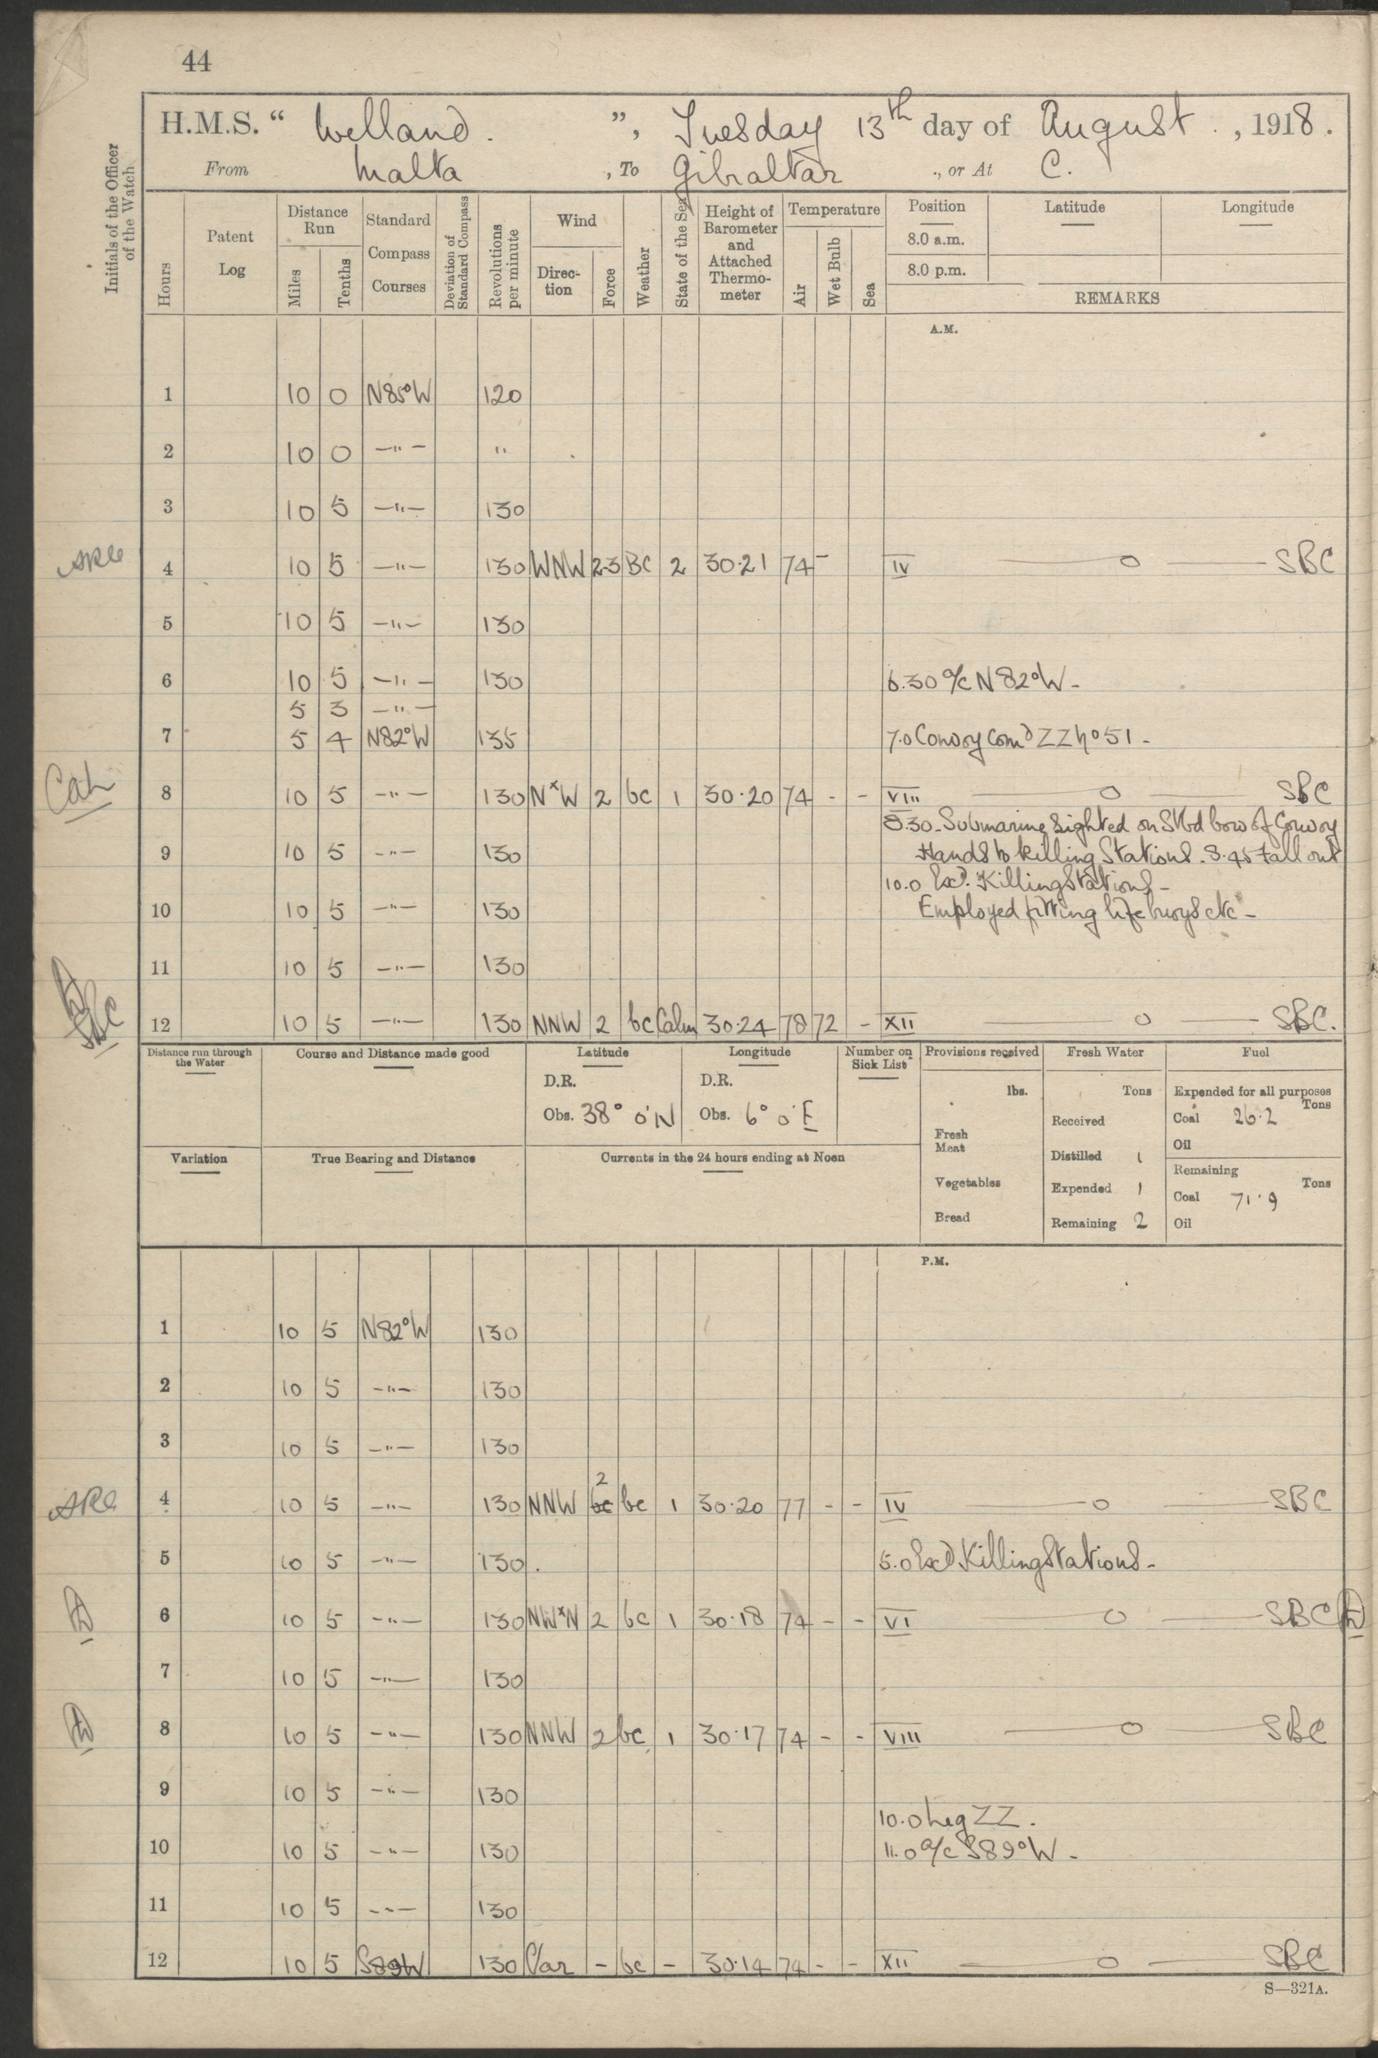 44
H.M.S. “ Welland. ”, Tuesday 13th day of August ., 1918.
From Malta , To Gibraltar ., or At C.
Initials of the Officer of the Watch
Hours Patent Log Distance Run Miles Tenths Standard Compass Courses Deviation of Standard Compass Revolutions per minute Wind Direction Force Weather State of the Sea Height of Barometer and Attached Thermometer Temperature Air Wet Bulb Sea Position Latitude Longitude
8.0 a.m.
8.0 p.m.
REMARKS
A.M.
1 10 0 N85°W 120
2 10 0 —"— "
3 10 5 —"— 130
4 10 5 —"— 130 WNW 2-3 BC 2 30·21 74 - IV — o — SBC
5 10 5 —"— 130
6 10 5 —"— 130 6.30 a/c N82°W -
5 3 —"—
7 5 4 N82°W 135 7.0 Convoy Comd ZZ No 51 -
8 10 5 —"— 130 N×W 2 bc 1 30·20 74 - - VIII — o — SBC
8.30 - Submarine Sighted on Stbd bow of Convoy
9 10 5 —"— 130 Hands to killing Stations. 8.45 Fall out
10.0 Exd. Killing Stations -
10 10 5 —"— 130 Employed fitting life buoys etc -
11 10 5 —"— 130
SBC 12 10 5 —"— 130 NNW 2 bc Calm 30·24 78 72 - XII — o — SBC.
Distance run through the Water Course and Distance made good Latitude Longitude Number on Sick List Provisions received Fresh Water Fuel
D.R. D.R. lbs. Tons Expended for all purposes Tons
Obs. 38° 0' N Obs. 6° 0' E Received Coal 26·2
Fresh Meat Oil
Variation True Bearing and Distance Currents in the 24 hours ending at Noon Distilled 1 Remaining Tons
Vegetables Expended 1 Coal 71·9
Bread Remaining 2 Oil
P.M.
1 10 5 N82°W 130
2 10 5 —"— 130
3 10 5 —"— 130
2
4 10 5 —"— 130 NNW bc bc 1 30·20 77 - - IV — o — SBC
5 10 5 —"— 130 . 5.0 Exd Killing Stations -
6 10 5 —"— 130 NW×N 2 bc 1 30·18 74 - - VI o — SBC
7 10 5 —"— 130
8 10 5 —"— 130 NNW 2 bc 1 30·17 74 - - VIII — o — SBC
9 10 5 —"— 130
10.0 Leg ZZ.
10 10 5 —"— 130 11.0 a/c S89°W -
11 10 5 —"— 130
12 10 5 S89W 130 Var - bc - 30·14 74 - - XII — o — SBC
S—321A.